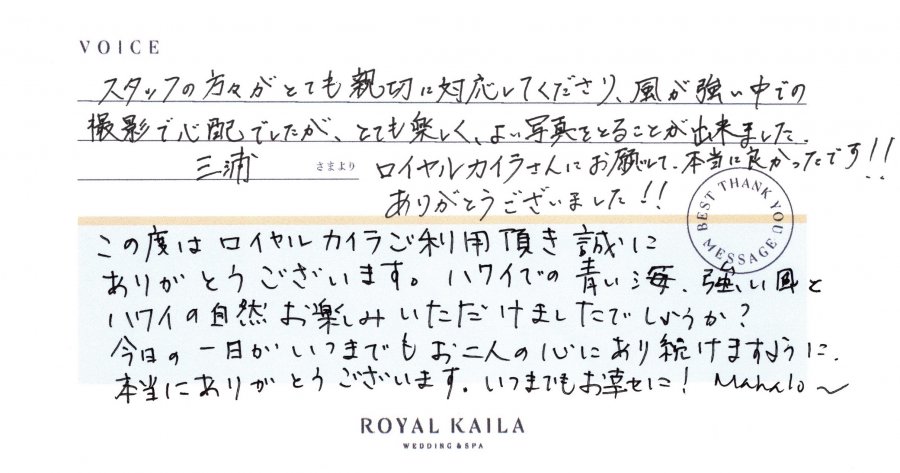 VOICE
スタッフの方々がとても親切に対応してくださり、風が強い中での
撮影で心配でしたが、とても楽しく、よい写真をとることが出来ました.
三浦 さまより
ロイヤルカイラさんにお願いして、本当に良かったです!!
ありがとうございました!!
BEST THANK YOU MESSAGE
この度はロイヤルカイラご利用頂き誠に
ありがとうございます。ハワイでの青い海、強い風と
ハワイの自然お楽しみいただけましたでしょうか?
今日の一日がいつまでもお二人の心にあり続けますように.
本当にありがとうございます. いつまでもお幸せに! Mahalo~
ROYAL KAILA
WEDDING & SPA